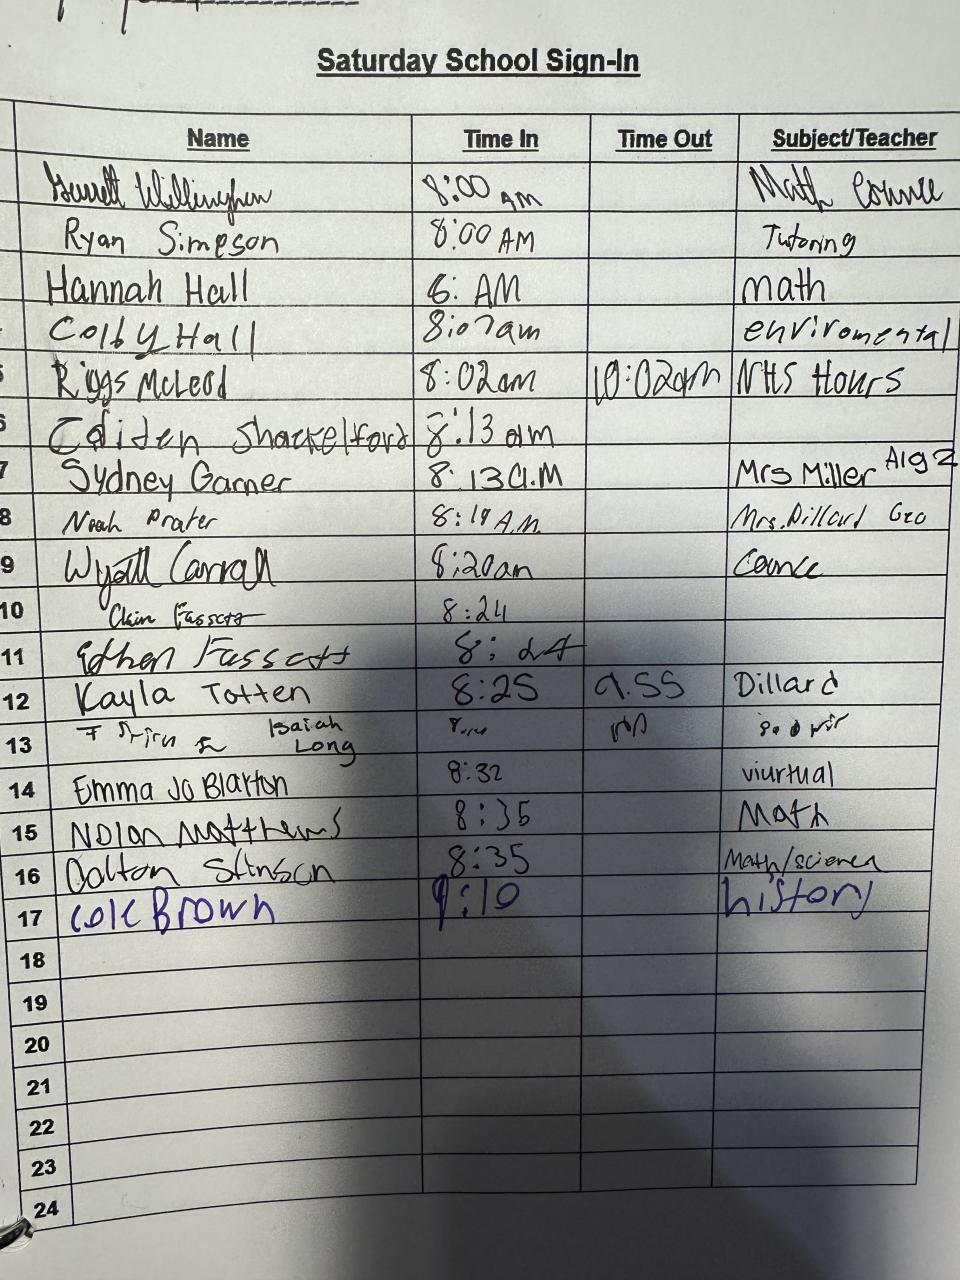 Saturday School Sign-In
Name Time In Time Out Subject/Teacher
Garrett Willingham 8:00 AM Math Counce
Ryan Simpson 8:00 AM Tutoring
Hannah Hall 8: AM math
Colby Hall 8:07am enviromental
5 Riggs McLeod 8:02am 10:02am NHS Hours
6 Caiden Shackelford 8:13 am
7 Sydney Garner 8:13 a.M Mrs Miller Alg 2
8 Noah Prater 8:19 A.M. Mrs. Dillard Geo
9 Wyatt Carroll 8:20am Counce
10 Fassett 8:24
11 Ethen Fassett 8:24
12 Kayla Totten 8:25 9.55 Dillard
13 Isaiah Long
14 Emma Jo Blanton 8:32 viurtual
15 Nolan Matthews 8:35 Math
16 Dalton Stinson 8:35 Math/science
17 Cole Brown 9:10 history
18
19
20
21
22
23
24